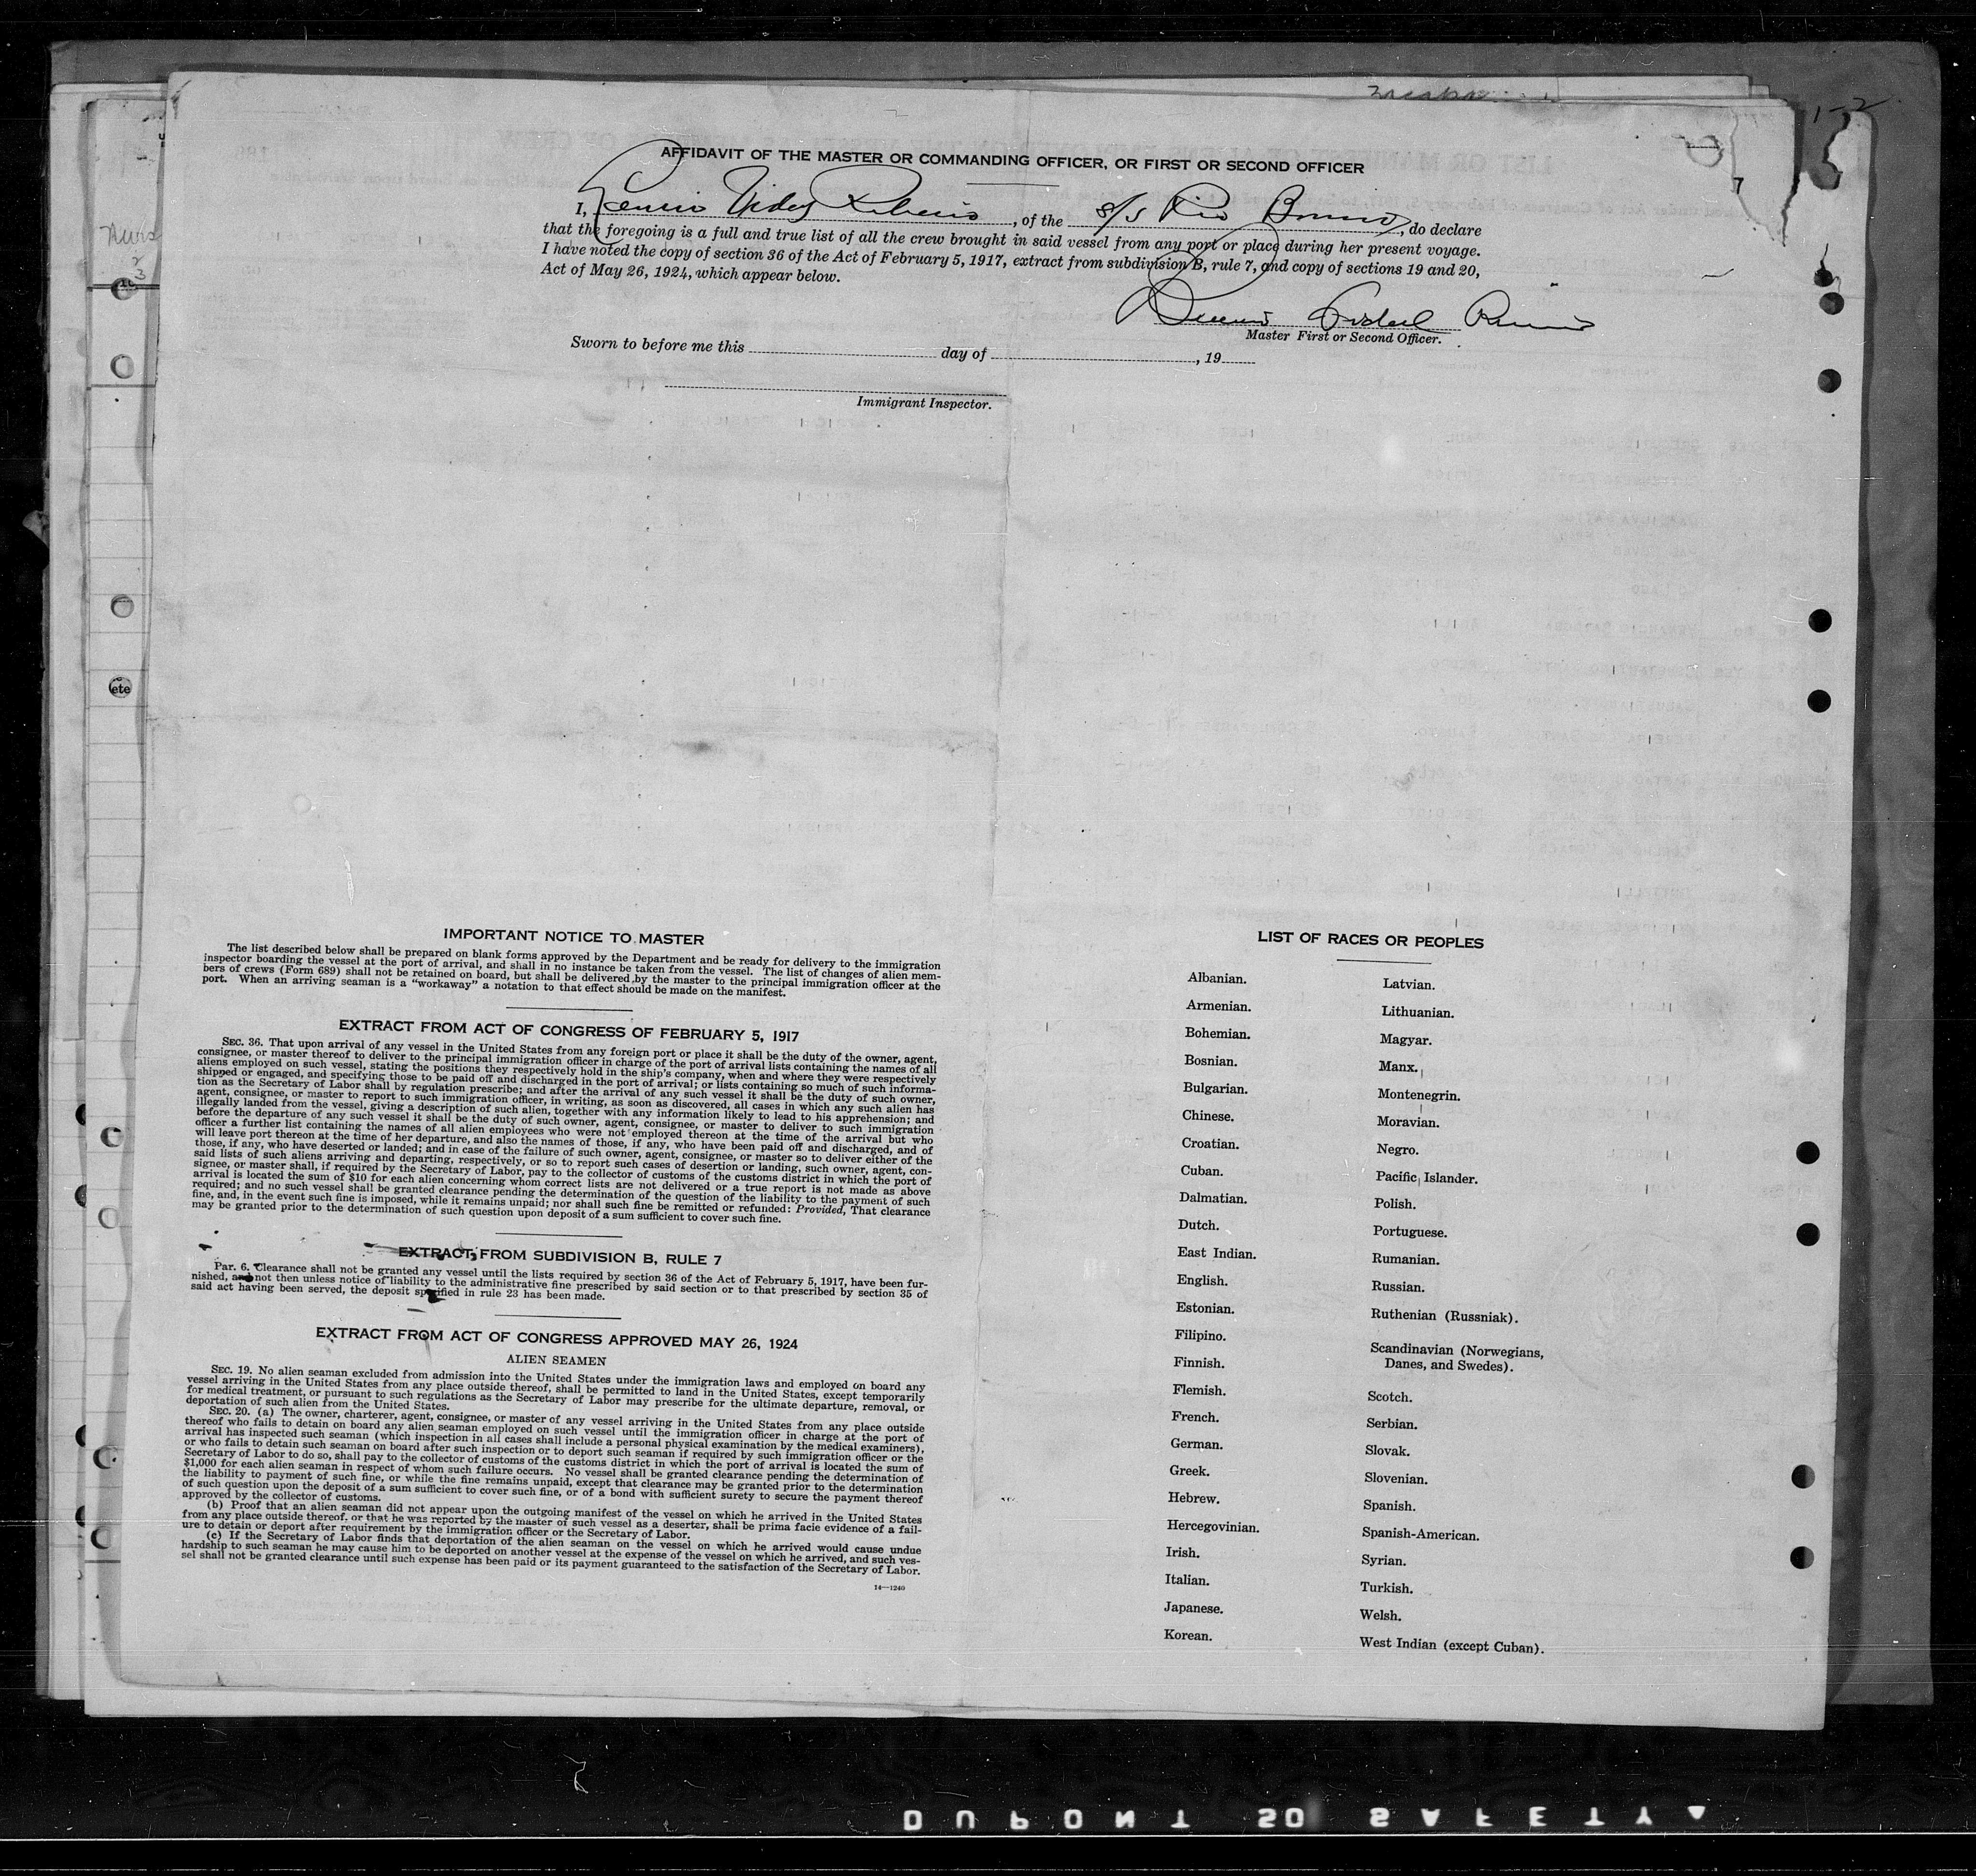 AFFIDAVIT OF THE MASTER OR COMMANDING OFFICER, OR FIRST OR SECOND OFFICER
I, , of the S/S Rio , do declare
that the foregoing is a full and true list of all the crew brought in said vessel from any port or place during her present voyage.
I have noted the copy of section 36 of the Act of February 5, 1917, extract from subdivision B, rule 7, and copy of sections 19 and 20,
Act of May 26, 1924, which appear below.
Master First or Second Officer.
Sworn to before me this day of , 19
Immigrant Inspector.
IMPORTANT NOTICE TO MASTER
The list described below shall be prepared on blank forms approved by the Department and be ready for delivery to the immigration
inspector boarding the vessel at the port of arrival, and shall in no instance be taken from the vessel. The list of changes of alien mem-
bers of crews (Form 689) shall not be retained on board, but shall be delivered by the master to the principal immigration officer at the
port. When an arriving seaman is a "workaway" a notation to that effect should be made on the manifest.
EXTRACT FROM ACT OF CONGRESS OF FEBRUARY 5, 1917
SEC. 36. That upon arrival of any vessel in the United States from any foreign port or place it shall be the duty of the owner, agent,
consignee, or master thereof to deliver to the principal immigration officer in charge of the port of arrival lists containing the names of all
aliens employed on such vessel, stating the positions they respectively hold in the ship's company, when and where they were respectively
shipped or engaged, and specifying those to be paid off and discharged in the port of arrival; or lists containing so much of such informa-
tion as the Secretary of Labor shall by regulation prescribe; and after the arrival of any such vessel it shall be the duty of such owner,
agent, consignee, or master to report to such immigration officer, in writing, as soon as discovered, all cases in which any such alien has
illegally landed from the vessel, giving a description of such alien, together with any information likely to lead to his apprehension; and
before the departure of any such vessel it shall be the duty of such owner, agent, consignee, or master to deliver to such immigration
officer a further list containing the names of all alien employees who were not employed thereon at the time of the arrival but who
will leave port thereon at the time of her departure, and also the names of those, if any, who have been paid off and discharged, and of
those, if any, who have deserted or landed; and in case of the failure of such owner, agent, consignee, or master so to deliver either of the
said lists of such aliens arriving and departing, respectively, or so to report such cases of desertion or landing, such owner, agent, con-
signee, or master shall, if required by the Secretary of Labor, pay to the collector of customs of the customs district in which the port of
arrival is located the sum of $10 for each alien concerning whom correct lists are not delivered or a true report is not made as above
required; and no such vessel shall be granted clearance pending the determination of the question of the liability to the payment of such
fine, and, in the event such fine is imposed, while it remains unpaid; nor shall such fine be remitted or refunded: Provided, That clearance
may be granted prior to the determination of such question upon deposit of a sum sufficient to cover such fine.
EXTRACT FROM SUBDIVISION B, RULE 7
Par. 6. Clearance shall not be granted any vessel until the lists required by section 36 of the Act of February 5, 1917, have been fur-
nished, and not then unless notice of liability to the administrative fine prescribed by said section or to that prescribed by section 35 of
said act having been served, the deposit specified in rule 23 has been made.
EXTRACT FROM ACT OF CONGRESS APPROVED MAY 26, 1924
ALIEN SEAMEN
SEC. 19. No alien seaman excluded from admission into the United States under the immigration laws and employed on board any
vessel arriving in the United States from any place outside thereof, shall be permitted to land in the United States, except temporarily
for medical treatment, or pursuant to such regulations as the Secretary of Labor may prescribe for the ultimate departure, removal, or
deportation of such alien from the United States.
SEC. 20. (a) The owner, charterer, agent, consignee, or master of any vessel arriving in the United States from any place outside
thereof who fails to detain on board any alien seaman employed on such vessel until the immigration officer in charge at the port of
arrival has inspected such seaman (which inspection in all cases shall include a personal physical examination by the medical examiners),
or who fails to detain such seaman on board after such inspection or to deport such seaman if required by such immigration officer or the
Secretary of Labor to do so, shall pay to the collector of customs of the customs district in which the port of arrival is located the sum of
$1,000 for each alien seaman in respect of whom such failure occurs. No vessel shall be granted clearance pending the determination of
the liability to payment of such fine, or while the fine remains unpaid, except that clearance may be granted prior to the determination
of such question upon the deposit of a sum sufficient to cover such fine, or of a bond with sufficient surety to secure the payment thereof
approved by the collector of customs.
(b) Proof that an alien seaman did not appear upon the outgoing manifest of the vessel on which he arrived in the United States
from any place outside thereof, or that he was reported by the master of such vessel as a deserter, shall be prima facie evidence of a fail-
ure to detain or deport after requirement by the immigration officer or the Secretary of Labor.
(c) If the Secretary of Labor finds that deportation of the alien seaman on the vessel on which he arrived would cause undue
hardship to such seaman he may cause him to be deported on another vessel at the expense of the vessel on which he arrived, and such ves-
sel shall not be granted clearance until such expense has been paid or its payment guaranteed to the satisfaction of the Secretary of Labor.
14—1240
LIST OF RACES OR PEOPLES
Albanian.
Armenian.
Bohemian.
Bosnian.
Bulgarian.
Chinese.
Croatian.
Cuban.
Dalmatian.
Dutch.
East Indian.
English.
Estonian.
Filipino.
Finnish.
Flemish.
French.
German.
Greek.
Hebrew.
Hercegovinian.
Irish.
Italian.
Japanese.
Korean.
Latvian.
Lithuanian.
Magyar.
Manx.
Montenegrin.
Moravian.
Negro.
Pacific Islander.
Polish.
Portuguese.
Rumanian.
Russian.
Ruthenian (Russniak).
Scandinavian (Norwegians,
Danes, and Swedes).
Scotch.
Serbian.
Slovak.
Slovenian.
Spanish.
Spanish-American.
Syrian.
Turkish.
Welsh.
West Indian (except Cuban).
ete
DUPONT 50 SAFETY